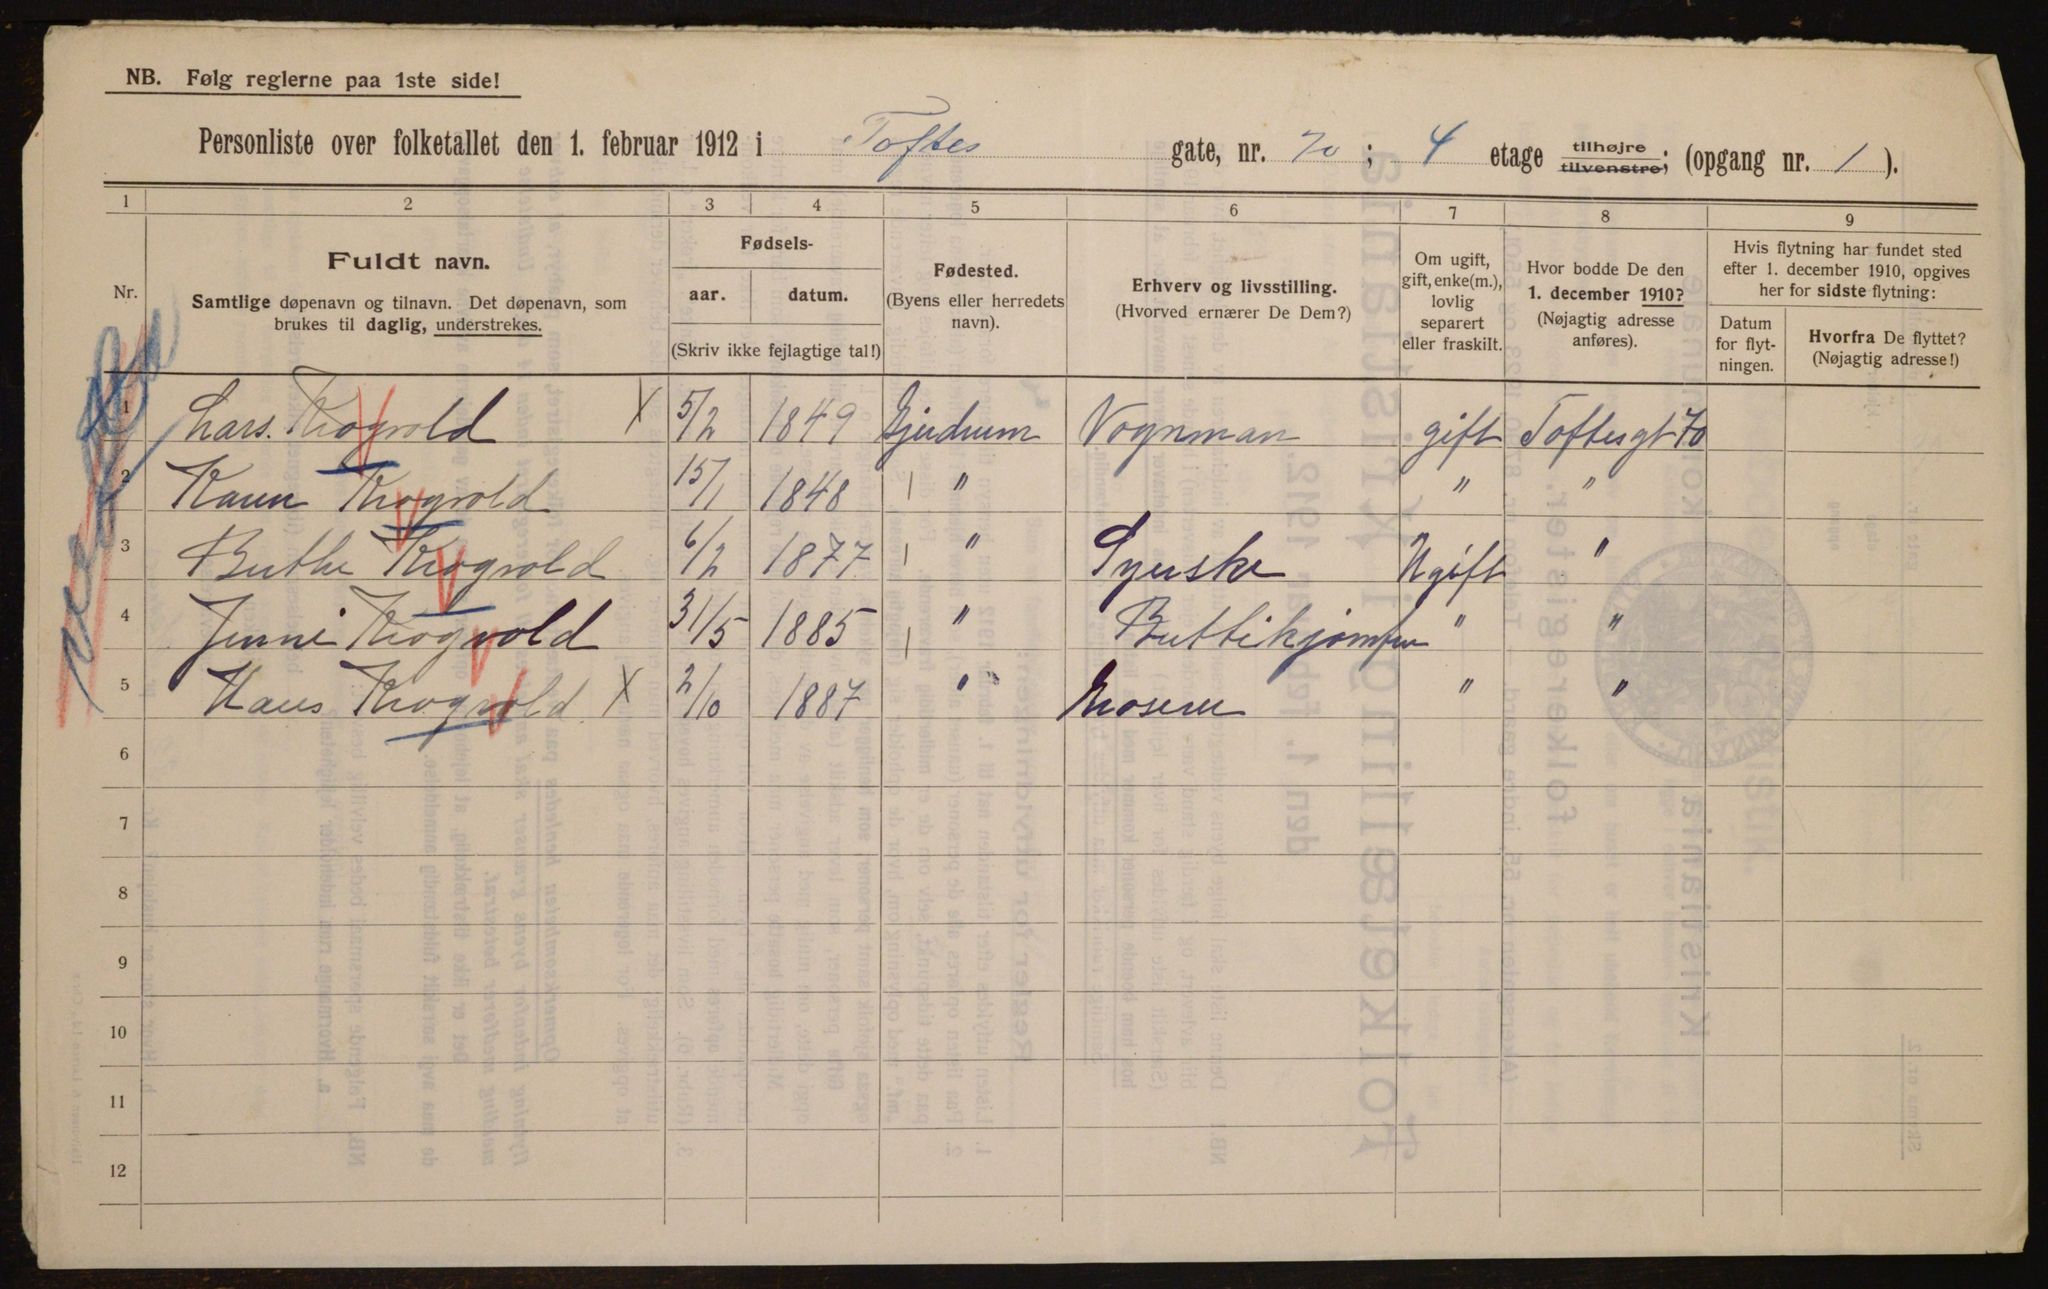 NB. Følg reglerne paa 1ste side!
Personliste over folketallet den 1. februar 1912 i Toftes gate, nr. 70; 4 etage tilhøjre tilvenstre; (opgang nr. 1).
1 2 3 4 5 6 7 8 9
Nr.
Fuldt navn.
Samtlige døpenavn og tilnavn. Det døpenavn, som
brukes til daglig, understrekes.
Fødsels-
aar. datum.
(Skriv ikke fejlagtige tal!)
Fødested.
(Byens eller herredets
navn).
Erhverv og livsstilling.
(Hvorved ernærer De Dem?)
Om ugift,
gift, enke(m.),
lovlig
separert
eller fraskilt.
Hvor bodde De den
1. december 1910?
(Nøjagtig adresse
anføres).
Hvis flytning har fundet sted
efter 1. december 1910, opgives
her for sidste flytning:
Datum
for flyt-
ningen.
Hvorfra De flyttet?
(Nøjagtig adresse!)
1 Lars. Krogvold X 5/2 1849 Gjerdrum Vognman gift Toftesgt 70
2 Karen Krogvold 15/1 1848 " " "
3 Berthe Krogvold 6/2 1877 " Syerske Ugift "
4 Jenni Krogvold 31/5 1885 " Buttikjomfru " "
5 Hans Krogvold X 2/10 1887 " Grosserer " "
6
7
8
9
10
11
12